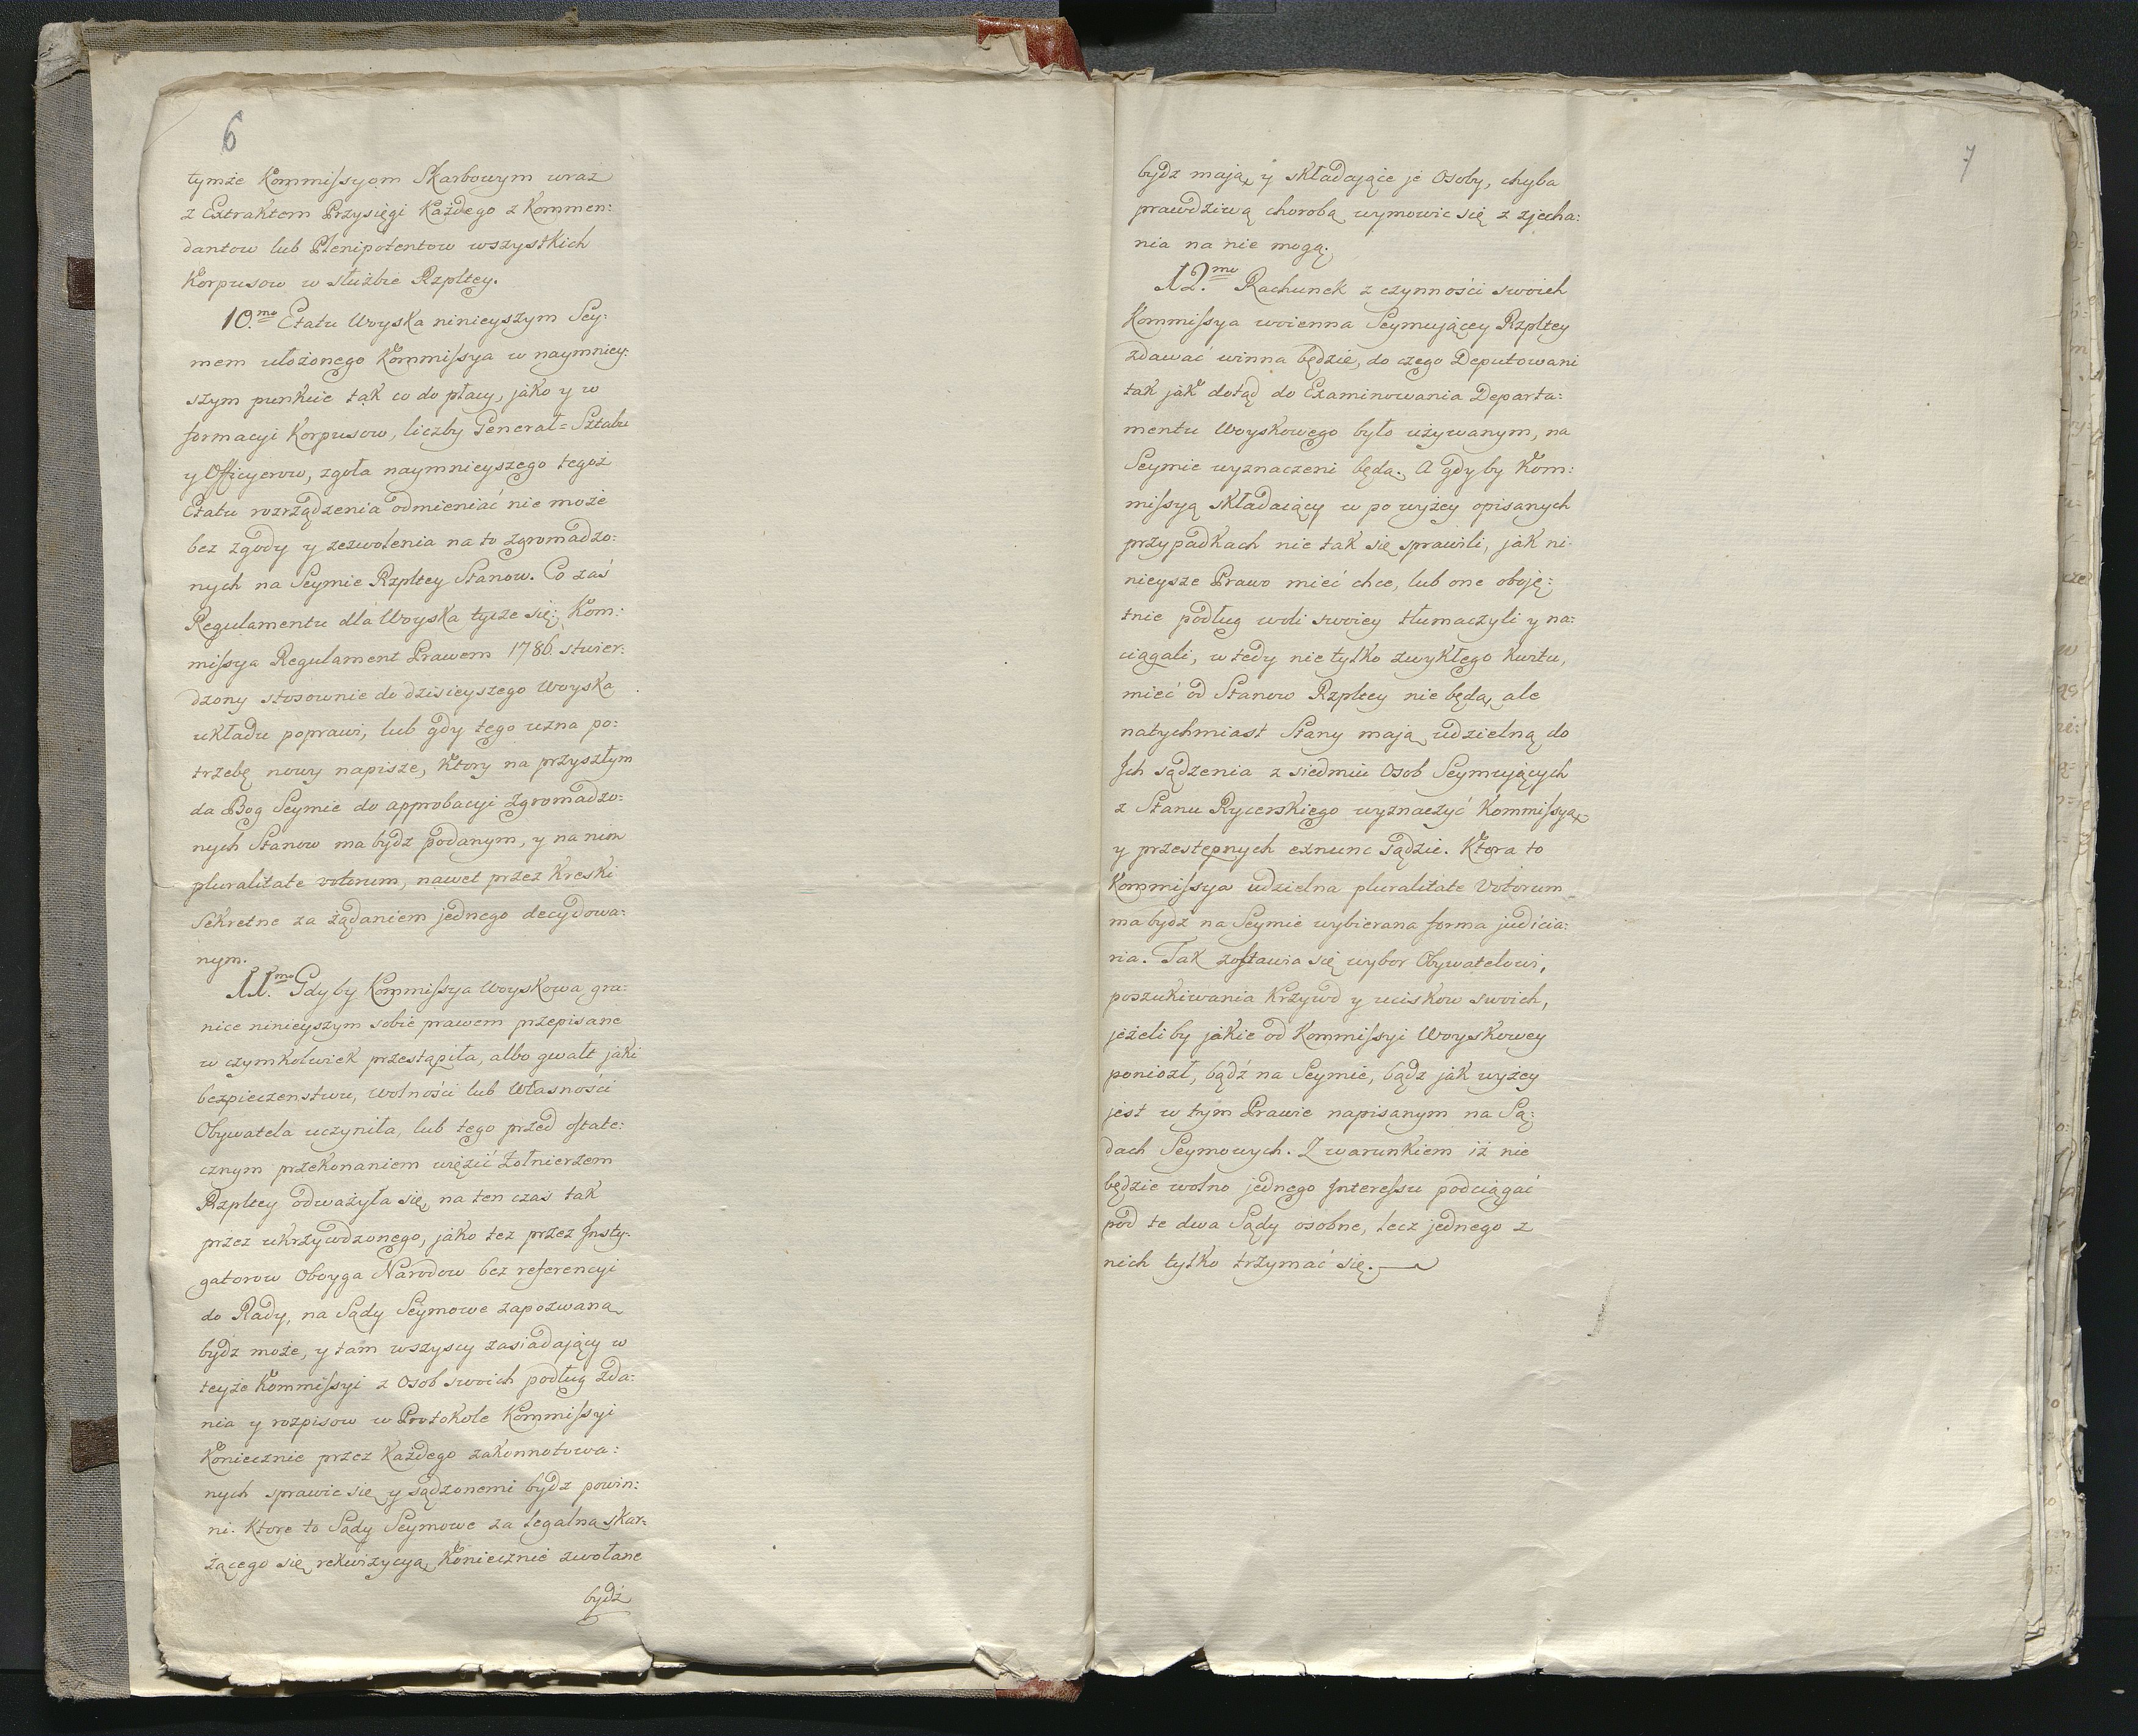 6
tymże Kommissyom Skarbowym wraz
z Extraktem Przysięgi Każdego z Kommen:
dantow lub Plenipotentow wszystkich
Korpusow w służbie Rzpltey.
10.mo Etatu Woyska ninieyszym Sey:
mem ułożonego Kommissya w naymniey:
szym punkcie tak co do płacy, jako y w
formacyi Korpusow, liczby Generał=Sztabu
y Officyerow, zgoła naymnieyszego tegoż
Etatu rozrządzenia odmieniać nie może
bez zgody y zezwolenia na to zgromadzo:
nych na Seymie Rzpltey Stanow. Co zaś
Regulamentu dla Woyska tycze się; Kom:
missya Regulament Prawem 1786. stwier:
dzony stosownie do dzisieyszego Woyska
układu poprawi, lub gdy tego uzna po:
trzebę nowy napisze, Ktory na przyszłym
da Bog Seymie do approbacyi Zgromadzo:
nych Stanow ma bydz podanym, y na nim
pluralitate votorum, nawet przez Kreski
Sekretne za żądaniem jednego decydowa:
nym.
11.mo Gdyby Kommissya Woyskowa gra:
nice ninieyszym sobie prawem przepisane
w czymkolwiek przestąpiła, albo gwałt jaki
bezpieczenstwu, wolności lub Własności
Obywatela uczyniła, lub tego przed ostate:
cznym przekonaniem więzić Żołnierzem
Rzpltey odważyła się, na ten czas tak
przez ukrzywdzonego, jako tez przez Insty:
gatorow Oboyga Narodow bez referencyi
do Rady, na Sądy Seymowe zapozwaną
bydz może, y tam wszyscy zasiadający w
teyże Kommissyi z Osob swoich podług zda:
nia y rozpisow w Protokole Kommissyi
Koniecznie przez Każdego zakonnotowa:
nych sprawic się y sądzonemi bydz powin:
ni. Ktore to Sądy Seymowe za legalną skar:
żącego się rekwizycyą Koniecznie zwołane
bydź
7
bydz mają, y składające je Osoby, chyba
prawdziwą chorobą wymowic się z zjecha:
nia na nie mogą.
12.mo Rachunek z czynności swoich
Kommissya woienna Seymującey Rzpltey
zdawać winna będzie, do czego Deputowani
tak jak dotąd do Examinowania Departa:
mentu Woyskowego było używanym, na
Seymie wyznaczeni będą. A gdyby Kom:
missyą składaiący w powyżey opisanych
przypadkach nie tak się sprawili, jak ni:
nieysze Prawo mieć chce, lub one oboję:
tnie podług woli swoiey tłumaczyli y na:
ciągali, w tedy nie tylko zwykłego kwitu,
mieć od Stanow Rzpltey nie będą, ale
natychmiast Stany mają udzielną do
Ich sądzenia z siedmiu Osob Seymujących
z Stanu Rycerskiego wyznaczyć Kommissyą,
y przestępnych exnunc sądzić. Ktora to
Kommissya udzielna pluralitate Votorum
ma bydz na Seymie wybierana forma judicia:
ria. Tak zostawia się wybor Obywatelowi,
poszukiwania Krzywd y uciskow swoich,
jeżeli by jakie od Kommissyi Woyskowey
poniozł, bądź na Seymie, bądz jak wyżey
jest w tym Prawie napisanym na Są:
dach Seymowych. Z warunkiem iż nie
będzie wolno jednego Interessu podciągać
pod te dwa Sądy osobne, lecz jednego z
nich tylko trzymać się.